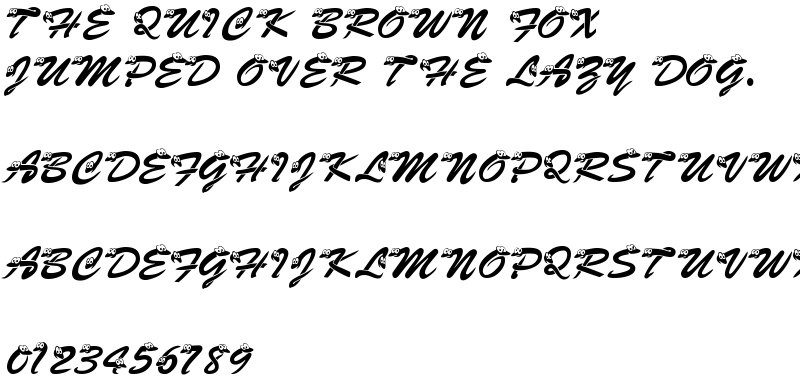 THE QUICK BROWN FOX
JUMPED OVER THE LAZY DOG.
ABCDEFGHIJKLMNOPQRSTUVW
ABCDEFGHIJKLMNOPQRSTUVW
0123456789